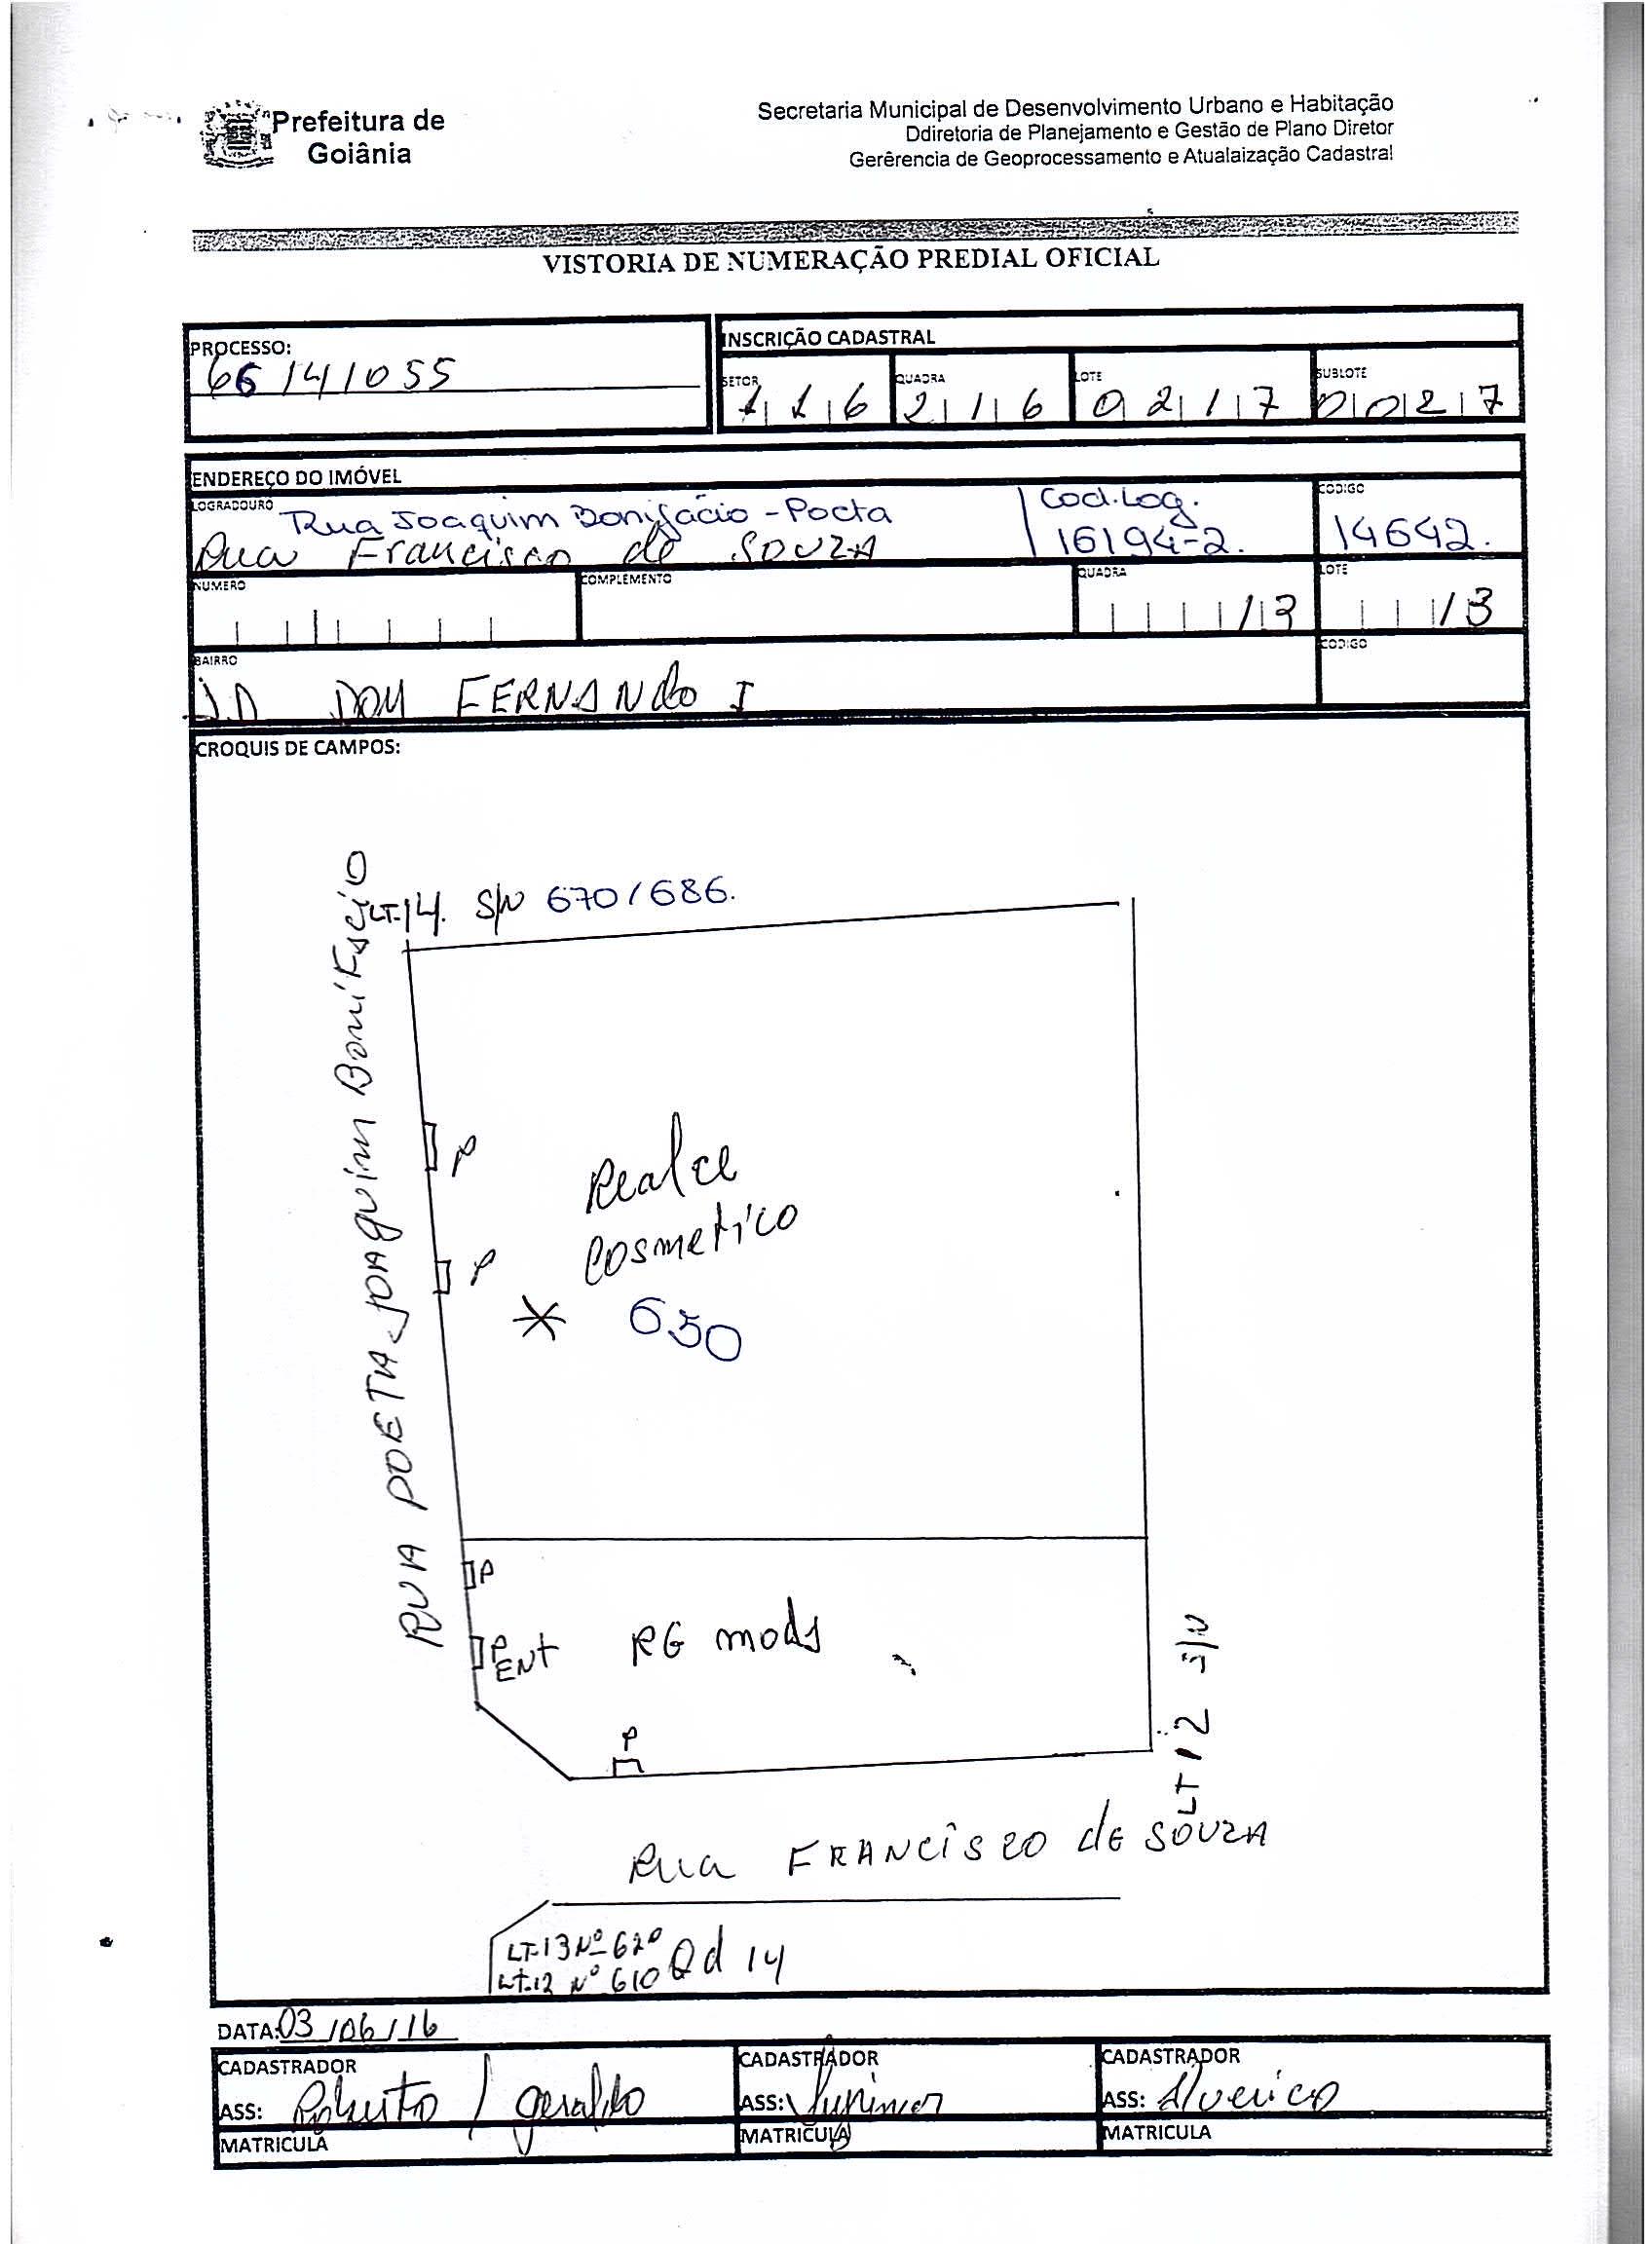 Prefeitura de
Goiânia
Secretaria Municipal de Desenvolvimento Urbano e Habitação
Ddiretoria de Planejamento e Gestão de Plano Diretor
Gerêrencia de Geoprocessamento e Atualaização Cadastral
VISTORIA DE NUMERAÇÃO PREDIAL OFICIAL
PROCESSO:
66141055
INSCRIÇÃO CADASTRAL
SETOR QUADRA LOTE SUBLOTE
116 216 0217 0027
ENDEREÇO DO IMÓVEL
LOGRADOURO
Rua Joaquim Bonifácio - Poeta
Rua Francisco de SOUZA
Cod.Log.
16194-2.
CODIGO
14642.
NUMERO
COMPLEMENTO
QUADRA
13
LOTE
13
BAIRRO
JD DOM FERNANdo I
CODIGO
CROQUIS DE CAMPOS:
LT-14. S/N 670/686.
RUA POETA JOAQUIM BONIFACIO
P
Realce
cosmetico
P
650
P
P
ENT
RG moda
P
LT 12 S/N
Rua FRANCISCO dE SOUZA
LT-13 Nº 620
LT-12 Nº 610
Qd 14
DATA: 03/06/16
CADASTRADOR
ASS: Roberto / geraldo
MATRICULA
CADASTRADOR
ASS:
MATRICULA
CADASTRADOR
ASS: Alverico
MATRICULA